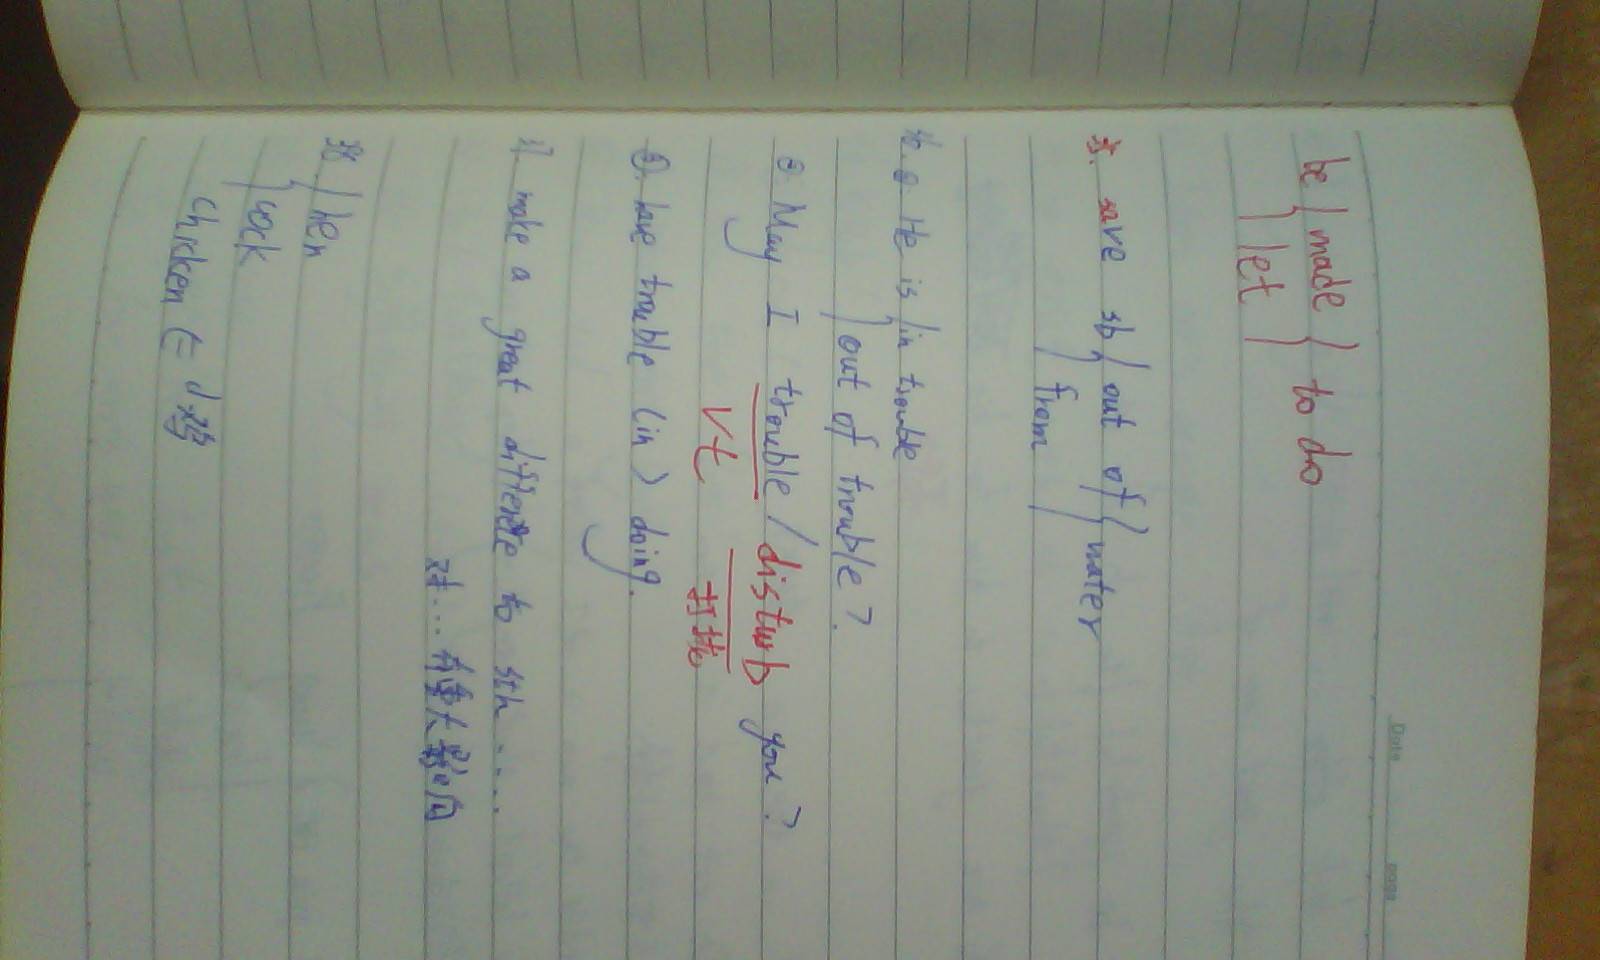 Date
page
be { made } to do
{ let }
35. save sb { out of } water
{ from }
36. ① He is { in trouble
{ out of trouble?
② May I trouble / disturb you?
vt 打扰
③. have trouble (in) doing.
37 make a great differente to sth .....
对... 有重大影响
38 { hen
{ cock
chicken ∈ 小鸡